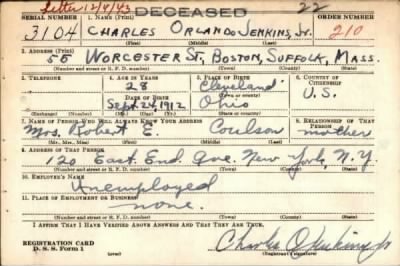 Letter 12/4/43 DECEASED 22
SERIAL NUMBER 1. NAME (Print) ORDER NUMBER
3104 CHARLES ORLANDO JENKINS, Jr. 210
(First) (Middle) (Last)
2. ADDRESS (Print)
55 WORCESTER ST, BOSTON, SUFFOLK, MASS.
(Number and street or R. F. D. number) (Town) (County) (State)
3. TELEPHONE 4. AGE IN YEARS 5. PLACE OF BIRTH 6. COUNTRY OF CITIZENSHIP
28 Cleveland
DATE OF BIRTH (Town or county)
Sept. 24, 1912 Ohio U.S.
(Exchange) (Number) (Mo.) (Day) (Yr.) (State or country)
7. NAME OF PERSON WHO WILL ALWAYS KNOW YOUR ADDRESS 8. RELATIONSHIP OF THAT PERSON
Mrs. Robert E. Coulson mother
(Mr., Mrs., Miss) (First) (Middle) (Last)
9. ADDRESS OF THAT PERSON
120 East End Ave. New York, N.Y.
(Number and street or R. F. D. number) (Town) (County) (State)
10. EMPLOYER'S NAME
Unemployed
11. PLACE OF EMPLOYMENT OR BUSINESS
none.
(Number and street or R. F. D. number) (Town) (County) (State)
I AFFIRM THAT I HAVE VERIFIED ABOVE ANSWERS AND THAT THEY ARE TRUE.
REGISTRATION CARD
D. S. S. Form 1
Charles O Jenkins Jr
(Registrant's signature)